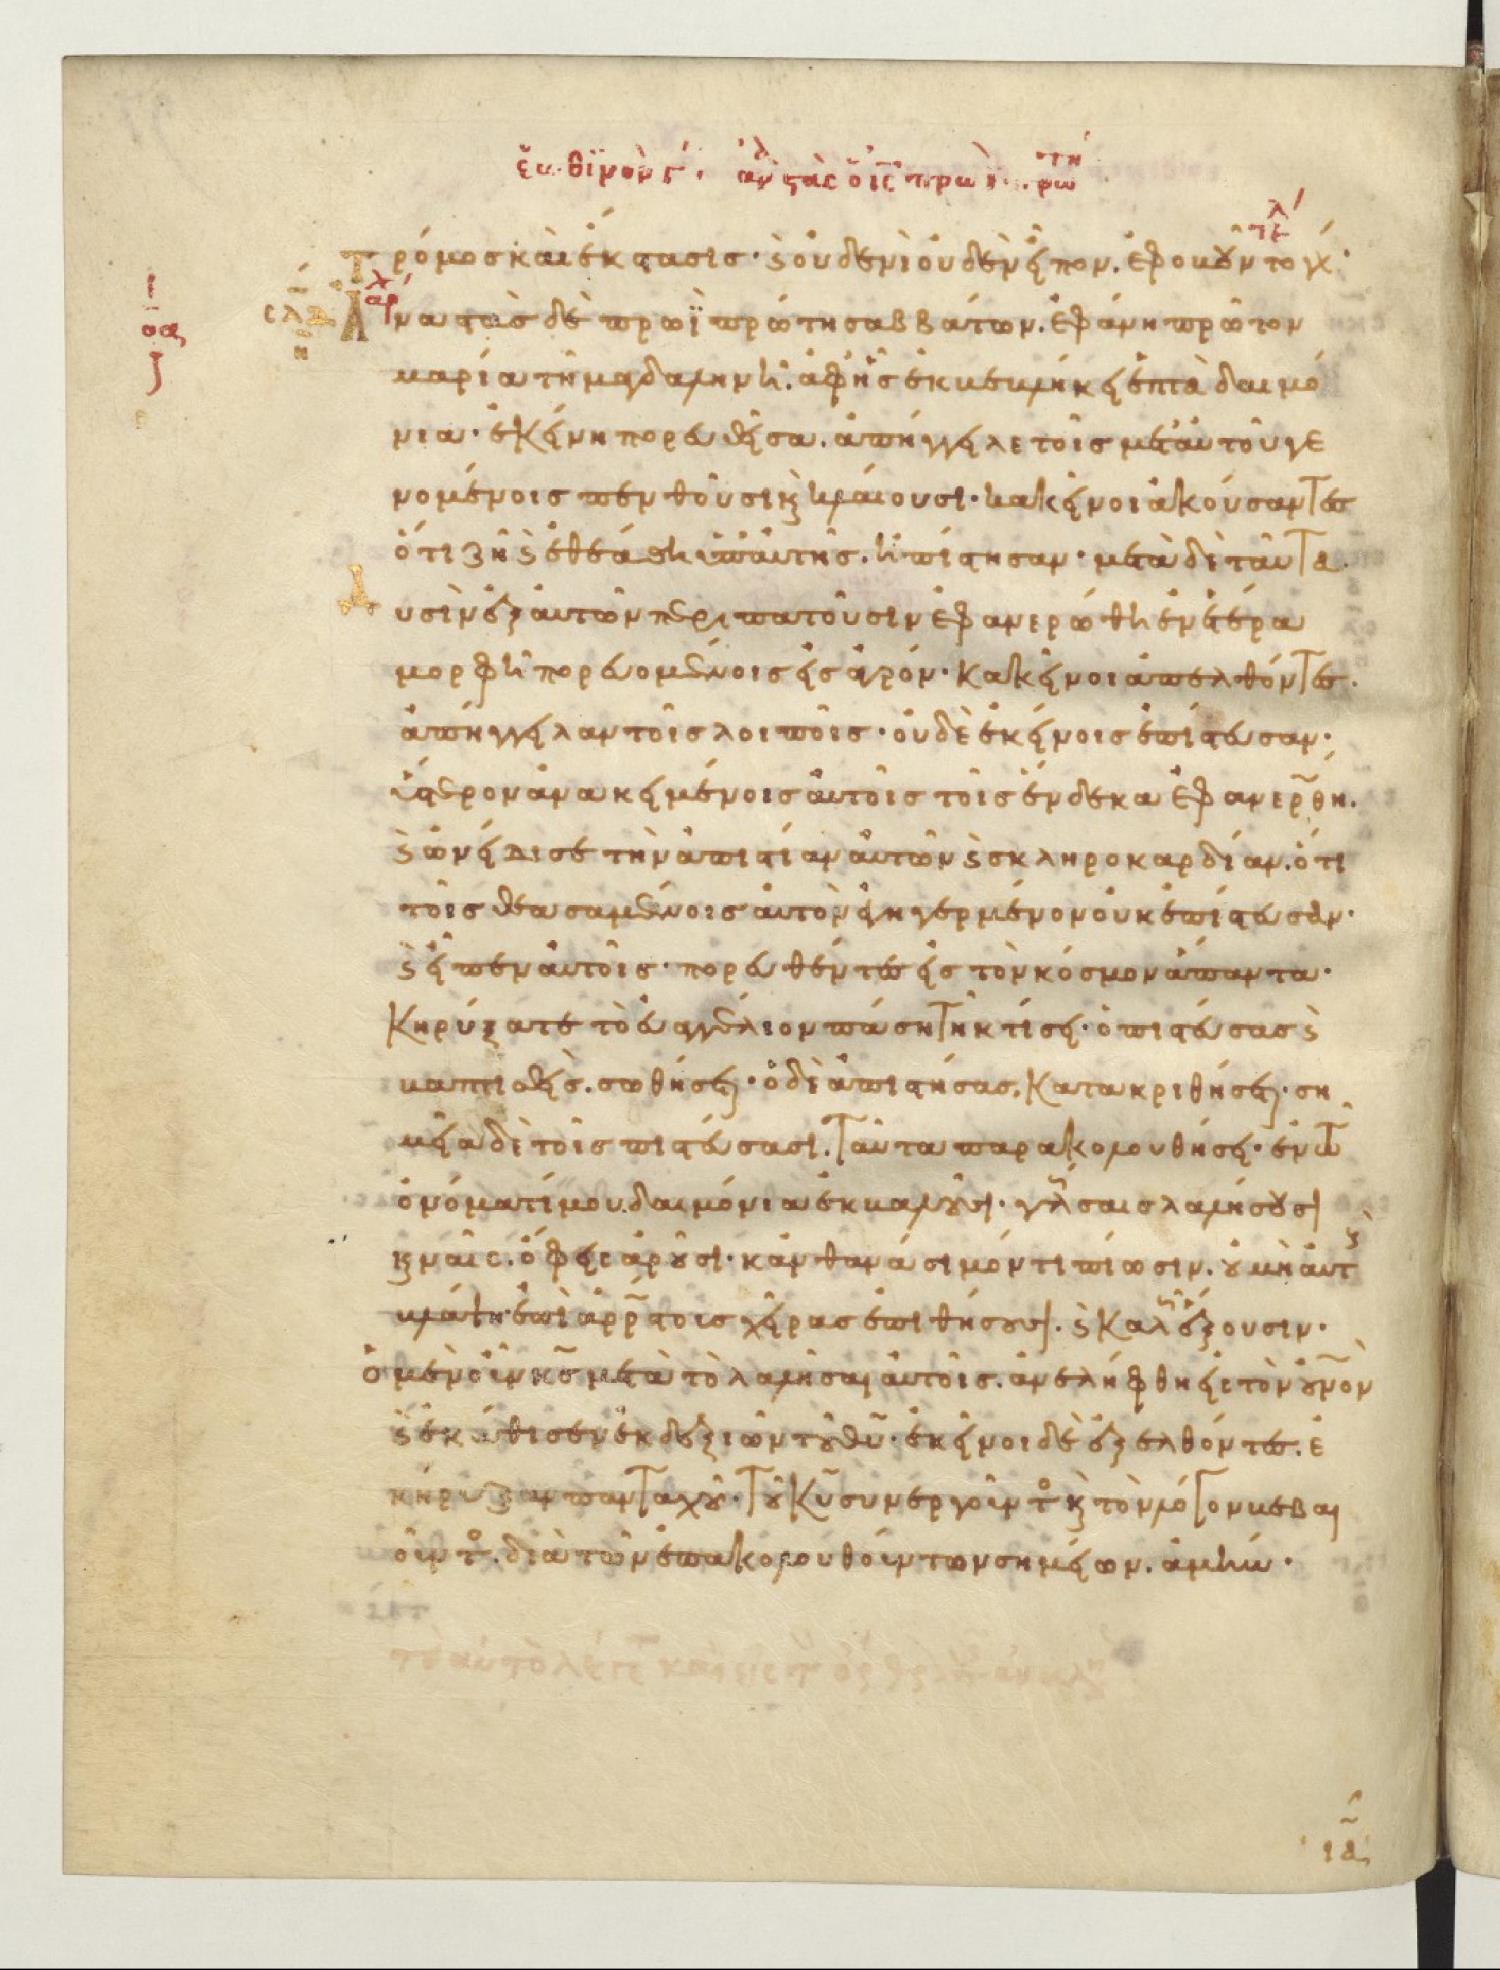 ἑωθινὸν γ΄. ἀναστὰς ὁ ις πρωῒ
τρόμος καὶ ἔκστασις· καὶ οὐδενὶ οὐδὲν εἶπον. ἐφοβοῦντο γάρ·
Ἀναστὰς δὲ πρωῒ πρώτη σαββάτων. ἐφάνη πρῶτον
μαρία τῆ μαγδαληνῆ. ἀφ' ἧς ἐκβεβλήκει ἑπτὰ δαιμό
νια· ἐκείνη πορευθεῖσα. ἀπήγγειλε τοῖς μετ' αὐτοῦ γε
νομένοις πενθοῦσι καὶ κλαίουσι· κακεῖνοι ἀκούσαντες
ὅτι ζῆ καὶ ἐθεάθη ὑπ' αὐτῆς. ἠπίστησαν· μετὰ δὲ ταῦτα.
Δυσὶν ἐξ αὐτῶν περιπατοῦσιν ἐφανερώθη ἐν ἑτέρα
μορφῆ πορευομένοις εἰς ἀγρόν· κακεῖνοι ἀπελθόντες.
ἀπήγγειλαν τοῖς λοιποῖς· οὐδὲ ἐκείνοις ἐπίστευσαν·
ὕστερον ἀνακειμένοις αὐτοῖς τοῖς ἕνδεκα ἐφανερώθη.
καὶ ὠνείδισε τὴν ἀπιστίαν αὐτῶν καὶ σκληροκαρδίαν. ὅτι
τοῖς θεασαμένοις αὐτὸν ἐγηγερμένον οὐκ ἐπίστευσαν·
καὶ εἶπεν αὐτοῖς· πορευθέντες εἰς τὸν κόσμον ἅπαντα·
κηρύξατε τὸ εὐαγγέλιον πάση τῆ κτίσει· ὁ πιστεύσας καὶ
βαπτισθεὶς. σωθήσεται· ὁ δὲ ἀπιστήσας. κατακριθήσεται· ση
μεῖα δὲ τοῖς πιστεύσασι. ταῦτα παρακολουθήσει· ἐν τῶ
ὀνόματί μου δαιμόνια ἐκβαλοῦσι· γλώσσαις λαλήσουσι
καιναῖς. ὄφεις ἀροῦσι· κἂν θανάσιμόν τι πίωσιν. οὐ μὴ αὐτοὺς
βλάψη· ἐπὶ ἀρρώστοις χεῖρας ἐπιθήσουσι. καὶ καλῶς ἕξουσιν·
ὁ μὲν οὖν κς μετὰ τὸ λαλῆσαι αὐτοῖς. ἀνελήφθη εἰς τὸν οὐνὸν
καὶ ἐκάθισεν ἐκ δεξιῶν τοῦ θυ· ἐκεῖνοι δὲ ἐξελθόντες. ἐ
κήρυξαν πανταχοῦ· τοῦ κυ συνεργοῦντος καὶ τὸν λόγον βεβαι
οῦντος. διὰ τῶν ἐπακολουθούντων σημείων. ἀμήν·
ια